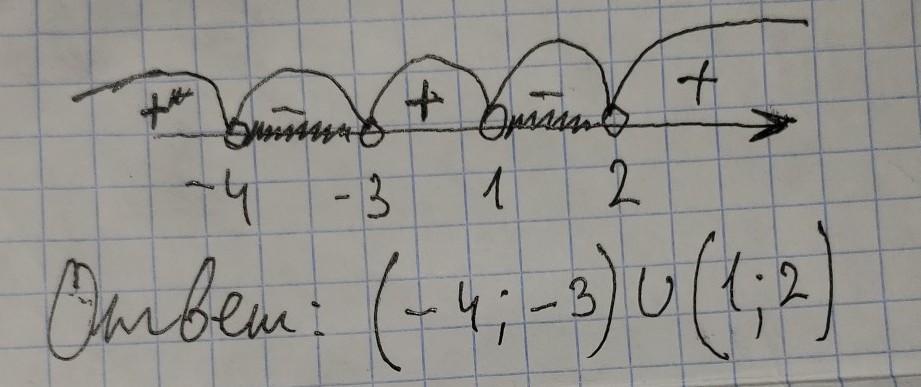 + - + - +
-4 -3 1 2
Ответ: (-4; -3) ∪ (1; 2)